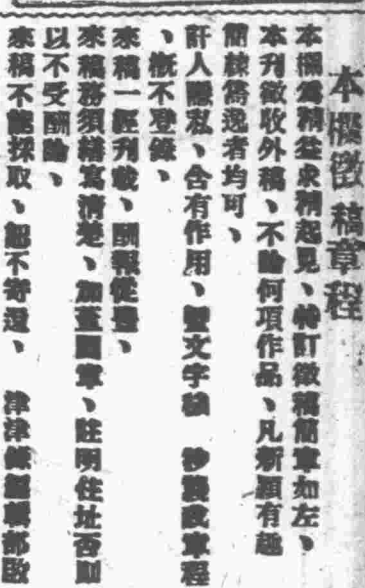 本欄徵稿章程
本欄爲精益求精起見、特訂徵稿簡章如左、
本刊徵收外稿、不論何項作品、凡新穎有趣
簡練雋逸者均可、
訐人隱私、含有作用、曁文字穢 抄襲改竄程
、槪不登錄、
來稿一經刊載、酬報從豐、
來稿務須繕寫清楚、加蓋圖章、註明住址否則
以不受酬論、
來稿不能採取、恕不寄還、 津津 編輯部啟